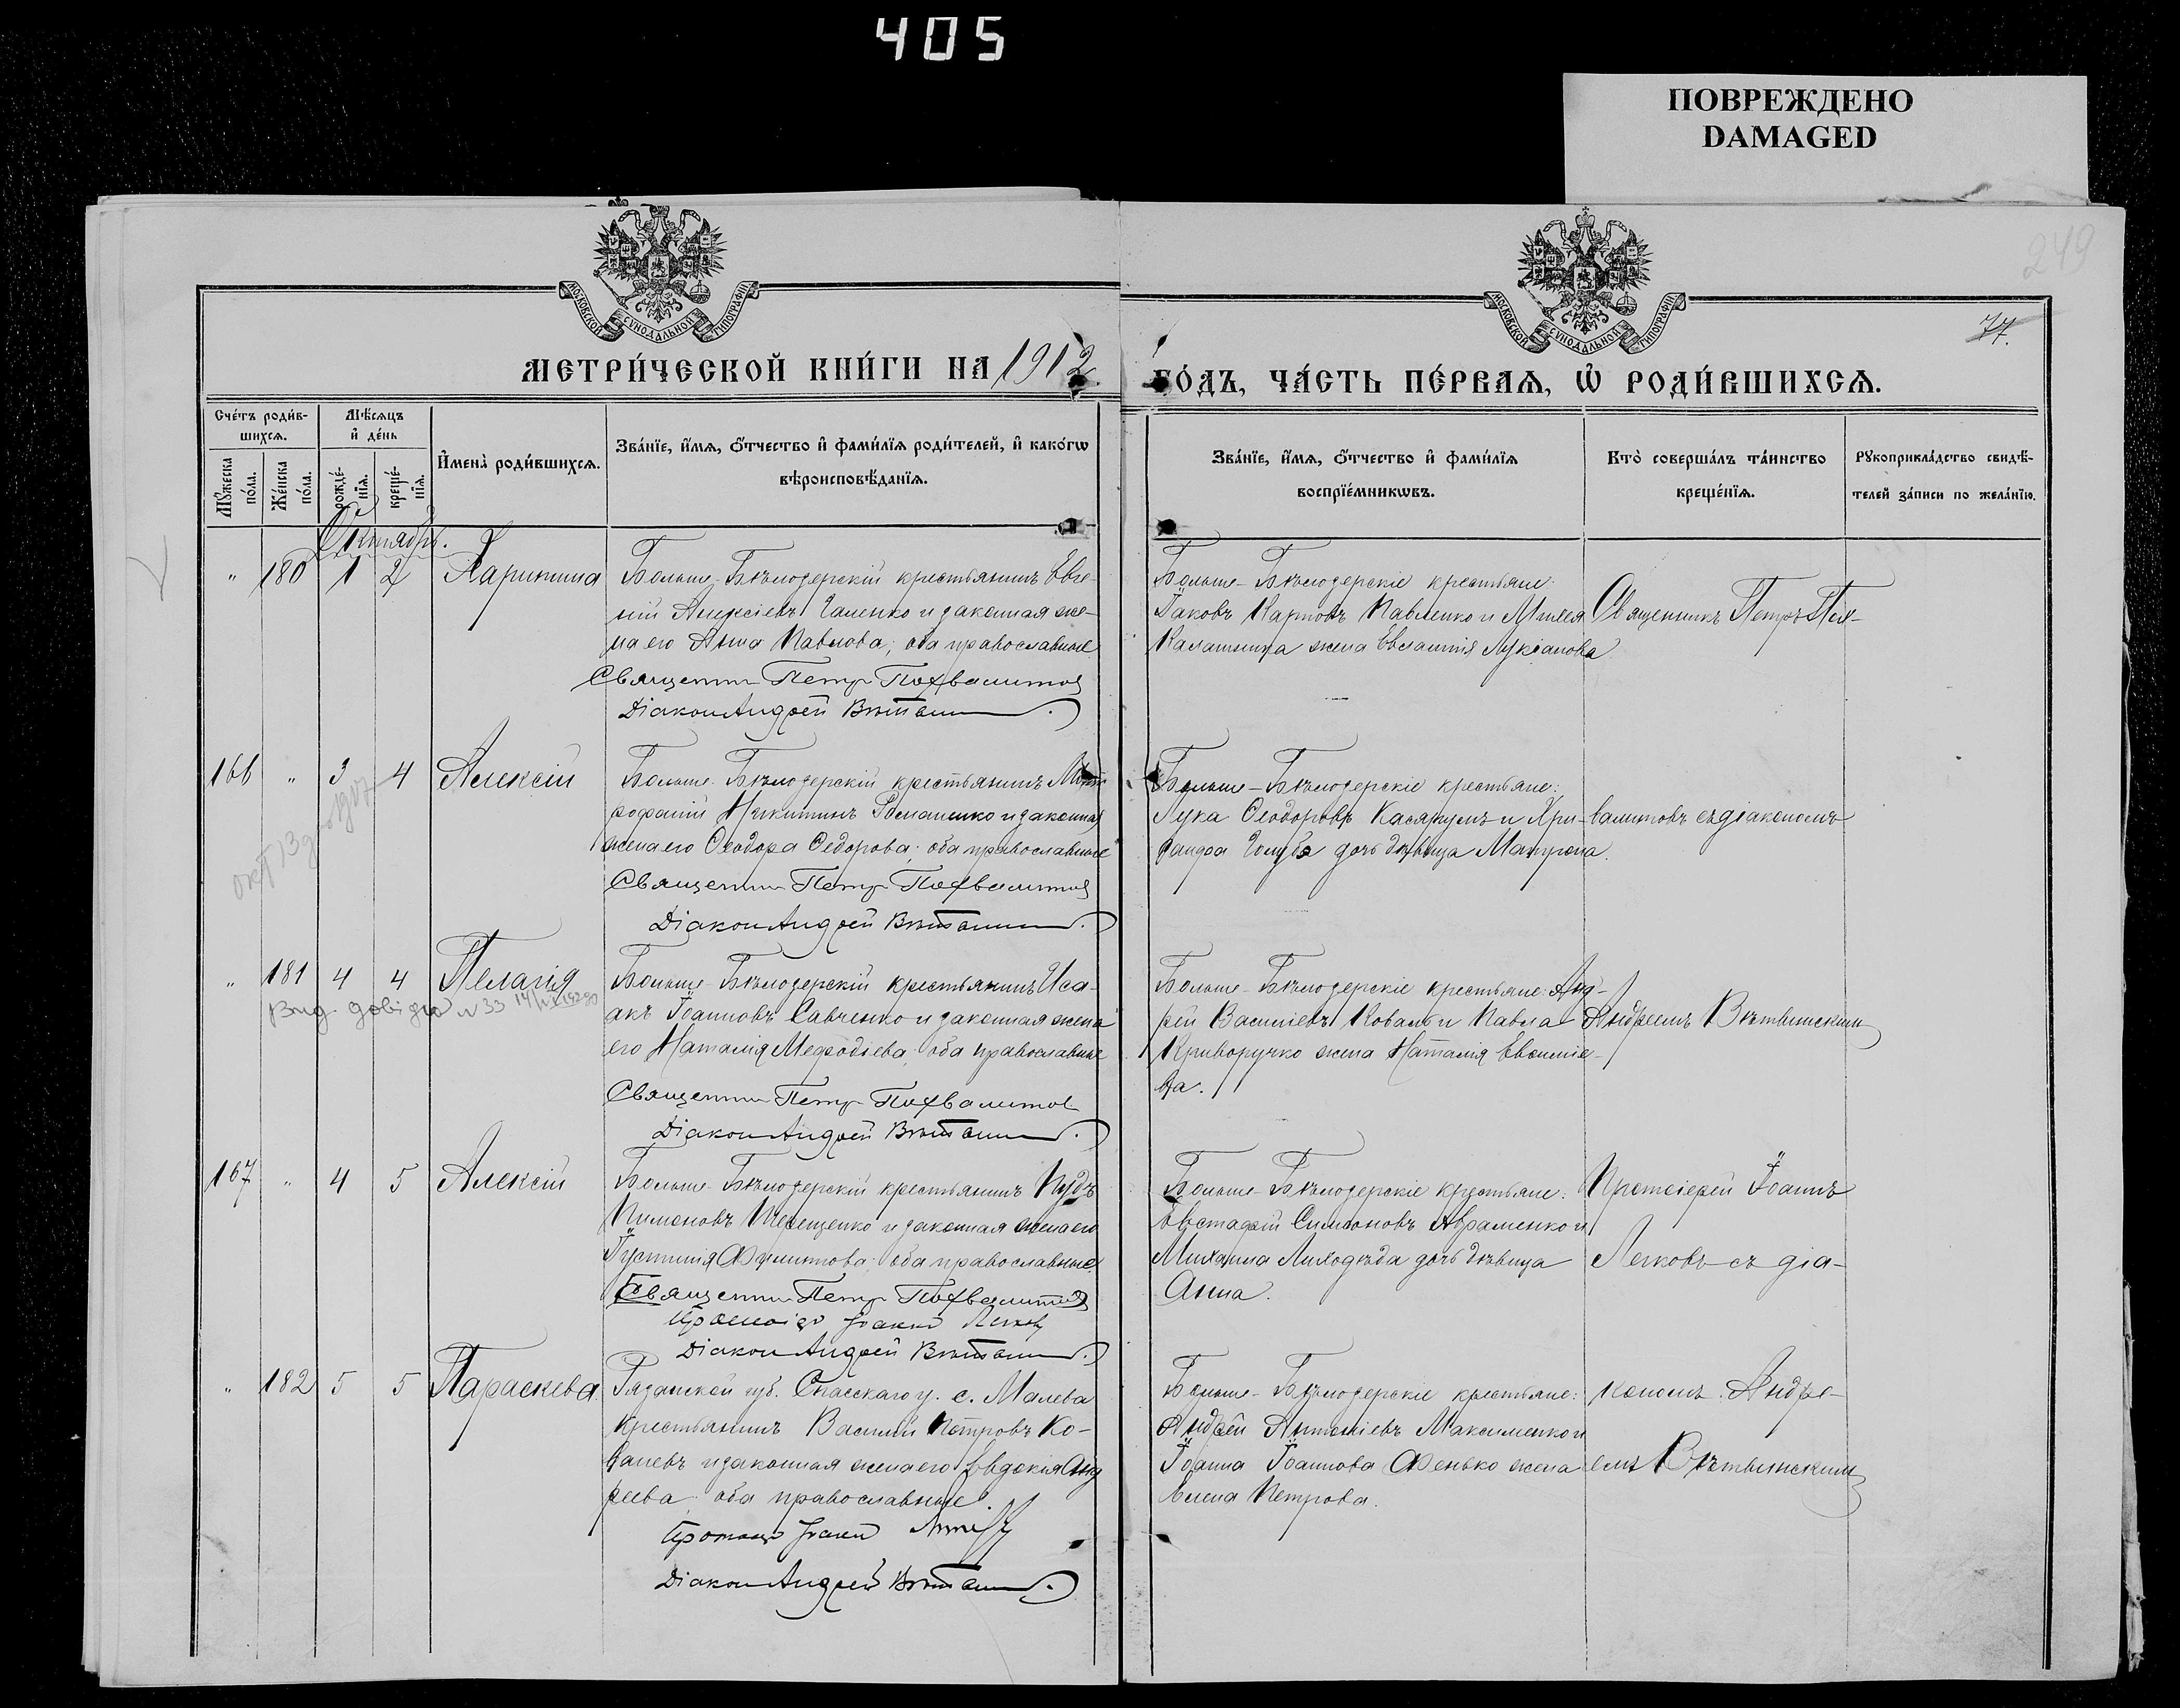 405
ПОВРЕЖДЕНО
DAMAGED
249
77.
МОСКОВСКОЙ СѴНОДАЛЬНОЙ ТИПОГРАФІИ
МОСКОВСКОЙ СѴНОДАЛЬНОЙ ТИПОГРАФІИ
МЕТРИ́ЧЕСКОЙ КНИ́ГИ НА 1912 ГО́ДЪ, ЧА́СТЬ ПЕ́РВАѦ, Ѡ РОДИ́ВШИХСѦ.
Сче́тъ роди́в-
шихсѧ.
Мꙋ́жеска по́ла.
Же́нска по́ла.
Мѣ́сѧцъ
и҆ де́нь
рожде́-
нїѧ.
креще́-
нїѧ.
И҆мена̀ роди́вшихсѧ.
Зва́нїе, и҆́мѧ, ѻ҆́тчество и҆ фами́лїѧ роди́телей, и҆ како́гѡ
вѣроисповѣ́данїѧ.
Зва́нїе, и҆́мѧ, ѻ҆́тчество и҆ фами́лїѧ
воспрїе́мникѡвъ.
Кто̀ соверша́лъ та́инство
креще́нїѧ.
Рꙋкоприкла́дство свидѣ́-
телей за́писи по жела́нїю.
Октябрь.
" 180 1 2 Харитина
Больше-Бѣлозерскій крестьянинъ Евге-
ній Алексіевъ Галенко и законная же-
на его Анна Павлова; оба православные
Священни Петр Похвалитов
Діакон Андрей Вѣтвин
Больше-Бѣлозерскіе крестьяне:
Іаковъ Карповъ Павленко и Михея
Калашника жена Евлампія Лукіанова
Священникъ Петръ Пох-
166 " 3 4 Алексій
Больше-Бѣлозерскій крестьянинъ Мит
рофаній Никитинъ Романенко и законная
жена его Ѳеодора Сидорова; оба православные
Священни Петр Похвалитов
Діакон Андрей Вѣтвин
Больше-Бѣлозерскіе крестьяне:
Лука Ѳеодоровъ Касярумъ и Хри-
санфа Голуба дочь дѣвица Матрона.
валитовъ съ діакономъ
" 181 4 4 Пелагія
Вид. довідка N 33
Больше-Бѣлозерскій крестьянинъ Иса-
акъ Іоанновъ Савченко и законная жена
его Наталія Меѳодіева; оба православные
Священни Петр Похвалитов
Діакон Андрей Вѣтвин
Больше-Бѣлозерскіе крестьяне: Анд-
рей Василіевъ Коваль и Павла
Криворучко жена Наталія Евѳиміе-
ва.
Андреемъ Вѣтвинским
167 " 4 5 Алексій
Больше-Бѣлозерскій крестьянинъ Пудъ
Пименовъ Терещенко и законная жена его
Іустинія Филиппова; оба православные
Священни Петр Похвалитов
Протоіер Іоанн Легков
Діакон Андрей Вѣтвин
Больше-Бѣлозерскіе крестьяне:
Евстафій Симеоновъ Авраменко и
Михаила Лиходѣда дочь дѣвица
Анна.
Протоіерей Іоаннъ
Легковъ съ діа-
" 182 5 5 Параскева
Рязанской губ. Спасскаго у. с. Малева
крестьянинъ Василій Петровъ Ко-
валевъ и законная жена его Евдокія Анд
реева; оба православные.
Діакон Андрей Вѣтвин
Больше-Бѣлозерскіе крестьяне:
Андрей Антоніевъ Максименко и
Іоанна Іоаннова Фенько жена
Елена Петрова.
кономъ Андре-
емъ Вѣтвинским